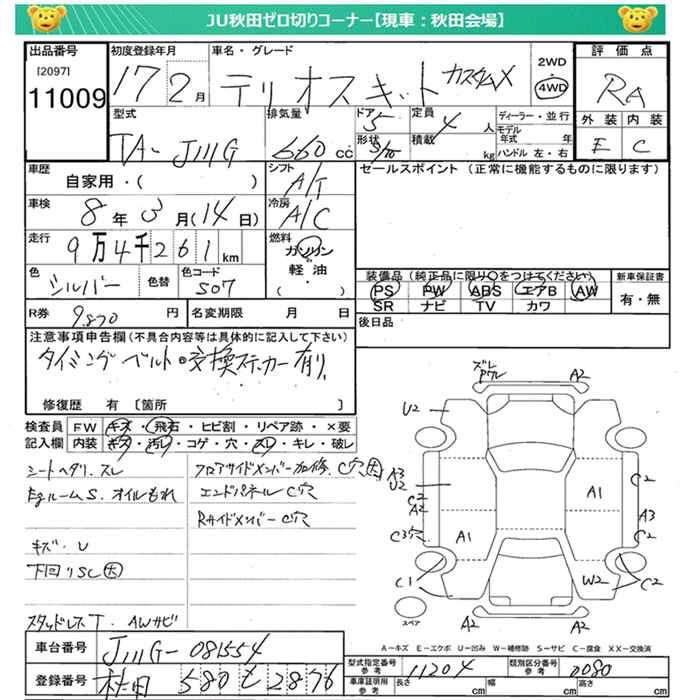 JU秋田ゼロ切りコーナー【現車：秋田会場】
出品番号
[2097]
11009
初度登録年月
17 2月
車名・グレード
テリオスキッド カスタムX
2WD
4WD
評価点
RA
外装 内装
E C
型式
TA-J111G
排気量
660cc
ドア
5
形状
5/70
定員
4人
積載
kg
ディーラー・並行
モデル年式 年
ハンドル 左・右
車歴
自家用・( )
シフト
A/T
セールスポイント (正常に機能するものに限ります)
車検
8年3月(14日)
冷房
A/C
走行
9万4千261km
燃料
ガソリン
軽油
( )
色
シルバー
色替
色コード
S07
装備品 (純正品に限り○をつけてください)
PS PW ABS エアB AW
SR ナビ TV カワ
新車保証書
有・無
R券
9870円
名変期限 月 日
後日品
注意事項申告欄(不具合内容等は具体的に記入して下さい)
タイミングベルト交換ステッカー有り
修復歴 有 [箇所 ]
検査員記入欄
FW キズ・飛石・ヒビ割・リペア跡・×要
内装 キズ・汚レ・コゲ・穴・スレ・キレ・破レ
シートヘタリ、スレ
EgルームS、オイルもれ
キズ・U
下回りSC大
スタッドレスT. AWサビ
フロアサイドメンバー加修、C穴大
エンドパネルC穴
RサイドメンバーC穴
ズレ
A2
U2
A3
U2
C2
A2
C3穴
C1
A1
A1
W2
C2
A3
C2
C2
A2
A2
スペア
A-キズ E-エクボ U-凹み W-補修跡 S-サビ C-腐食 XX-交換済
車台番号
J111G-081554
登録番号
秋田 580 そ 2876
型式指定番号 参考
11204
類別区分番号 参考
0080
車庫証明用 参考
長さ cm 幅 cm 高さ cm